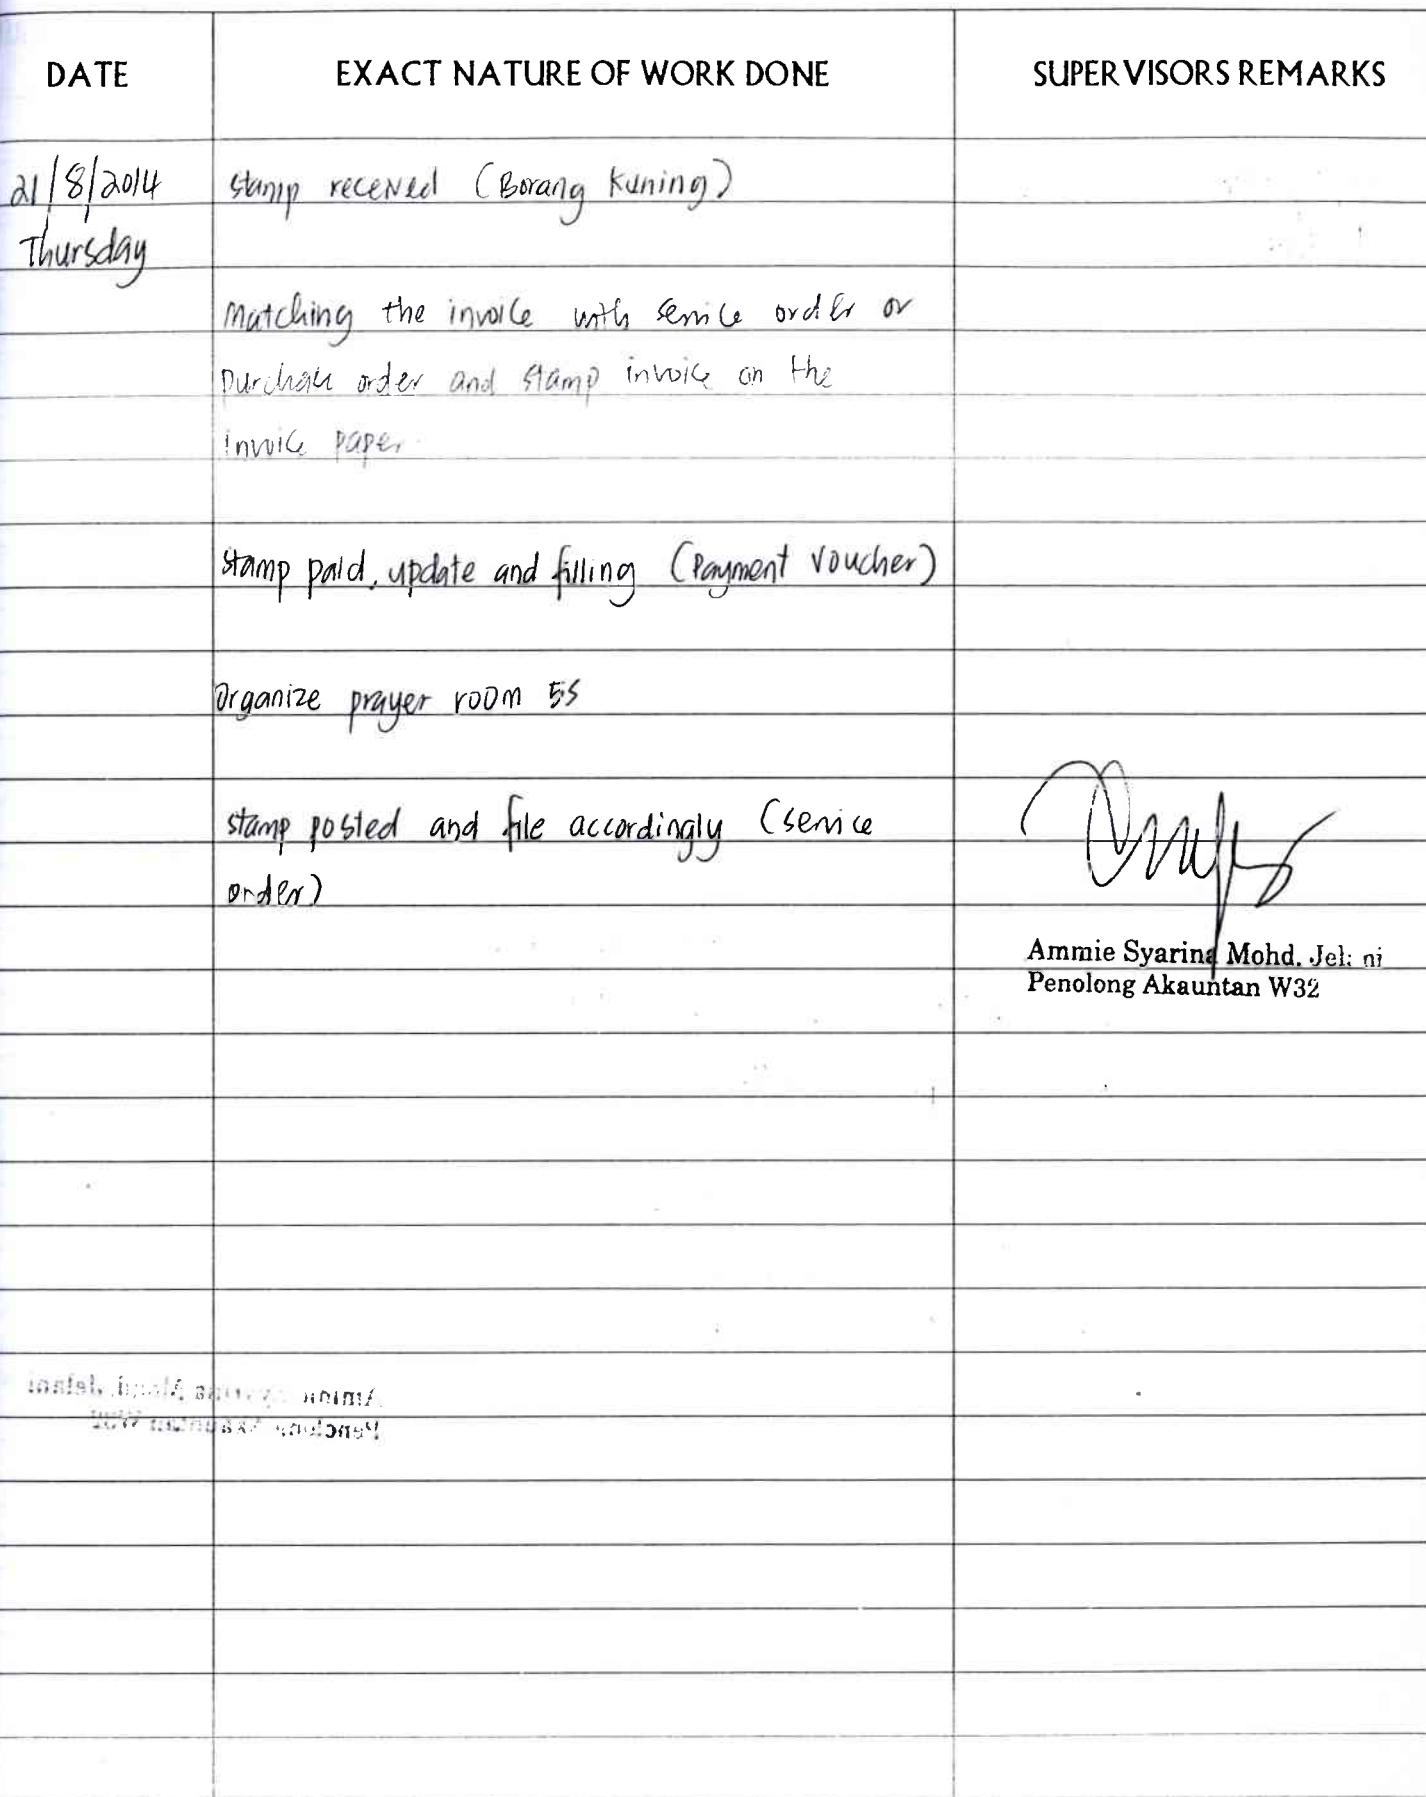 DATE EXACT NATURE OF WORK DONE SUPERVISORS REMARKS
21/8/2014 stamp received (Borang Kuning)
Thursday
Matching the invoice with service order or
purchase order and stamp invoice on the
invoice paper
stamp paid, update and filling (Payment Voucher)
Organize prayer room 5S
stamp posted and file accordingly (service
order)
Ammie Syarina Mohd. Jelani
Penolong Akauntan W32